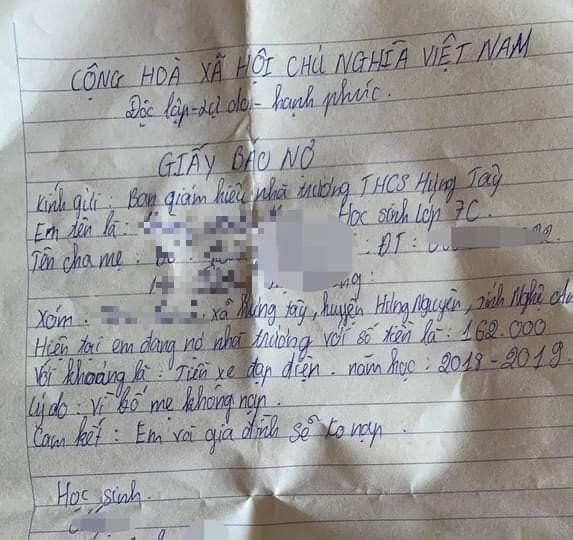 CỘNG HOÀ XÃ HỘI CHỦ NGHĨA VIỆT NAM
Độc lập - tự do - hạnh phúc.
GIẤY BÁO NỢ
Kính gửi: Ban giám hiệu nhà trường THCS Hưng Tây
Em tên là: Học sinh lớp 7C.
Tên cha mẹ: : ĐT:
Xóm: xã Hưng tây, huyện Hưng Nguyên, tỉnh Nghệ
Hiện tại em đang nợ nhà trường với số tiền là: 162.000
Với khoảng là: Tiền xe đạp điện. năm học: 2018-2019.
Lý do: vì bố mẹ không nạp.
Cam kết: Em và gia đình sẽ ko nạp.
Học sinh.